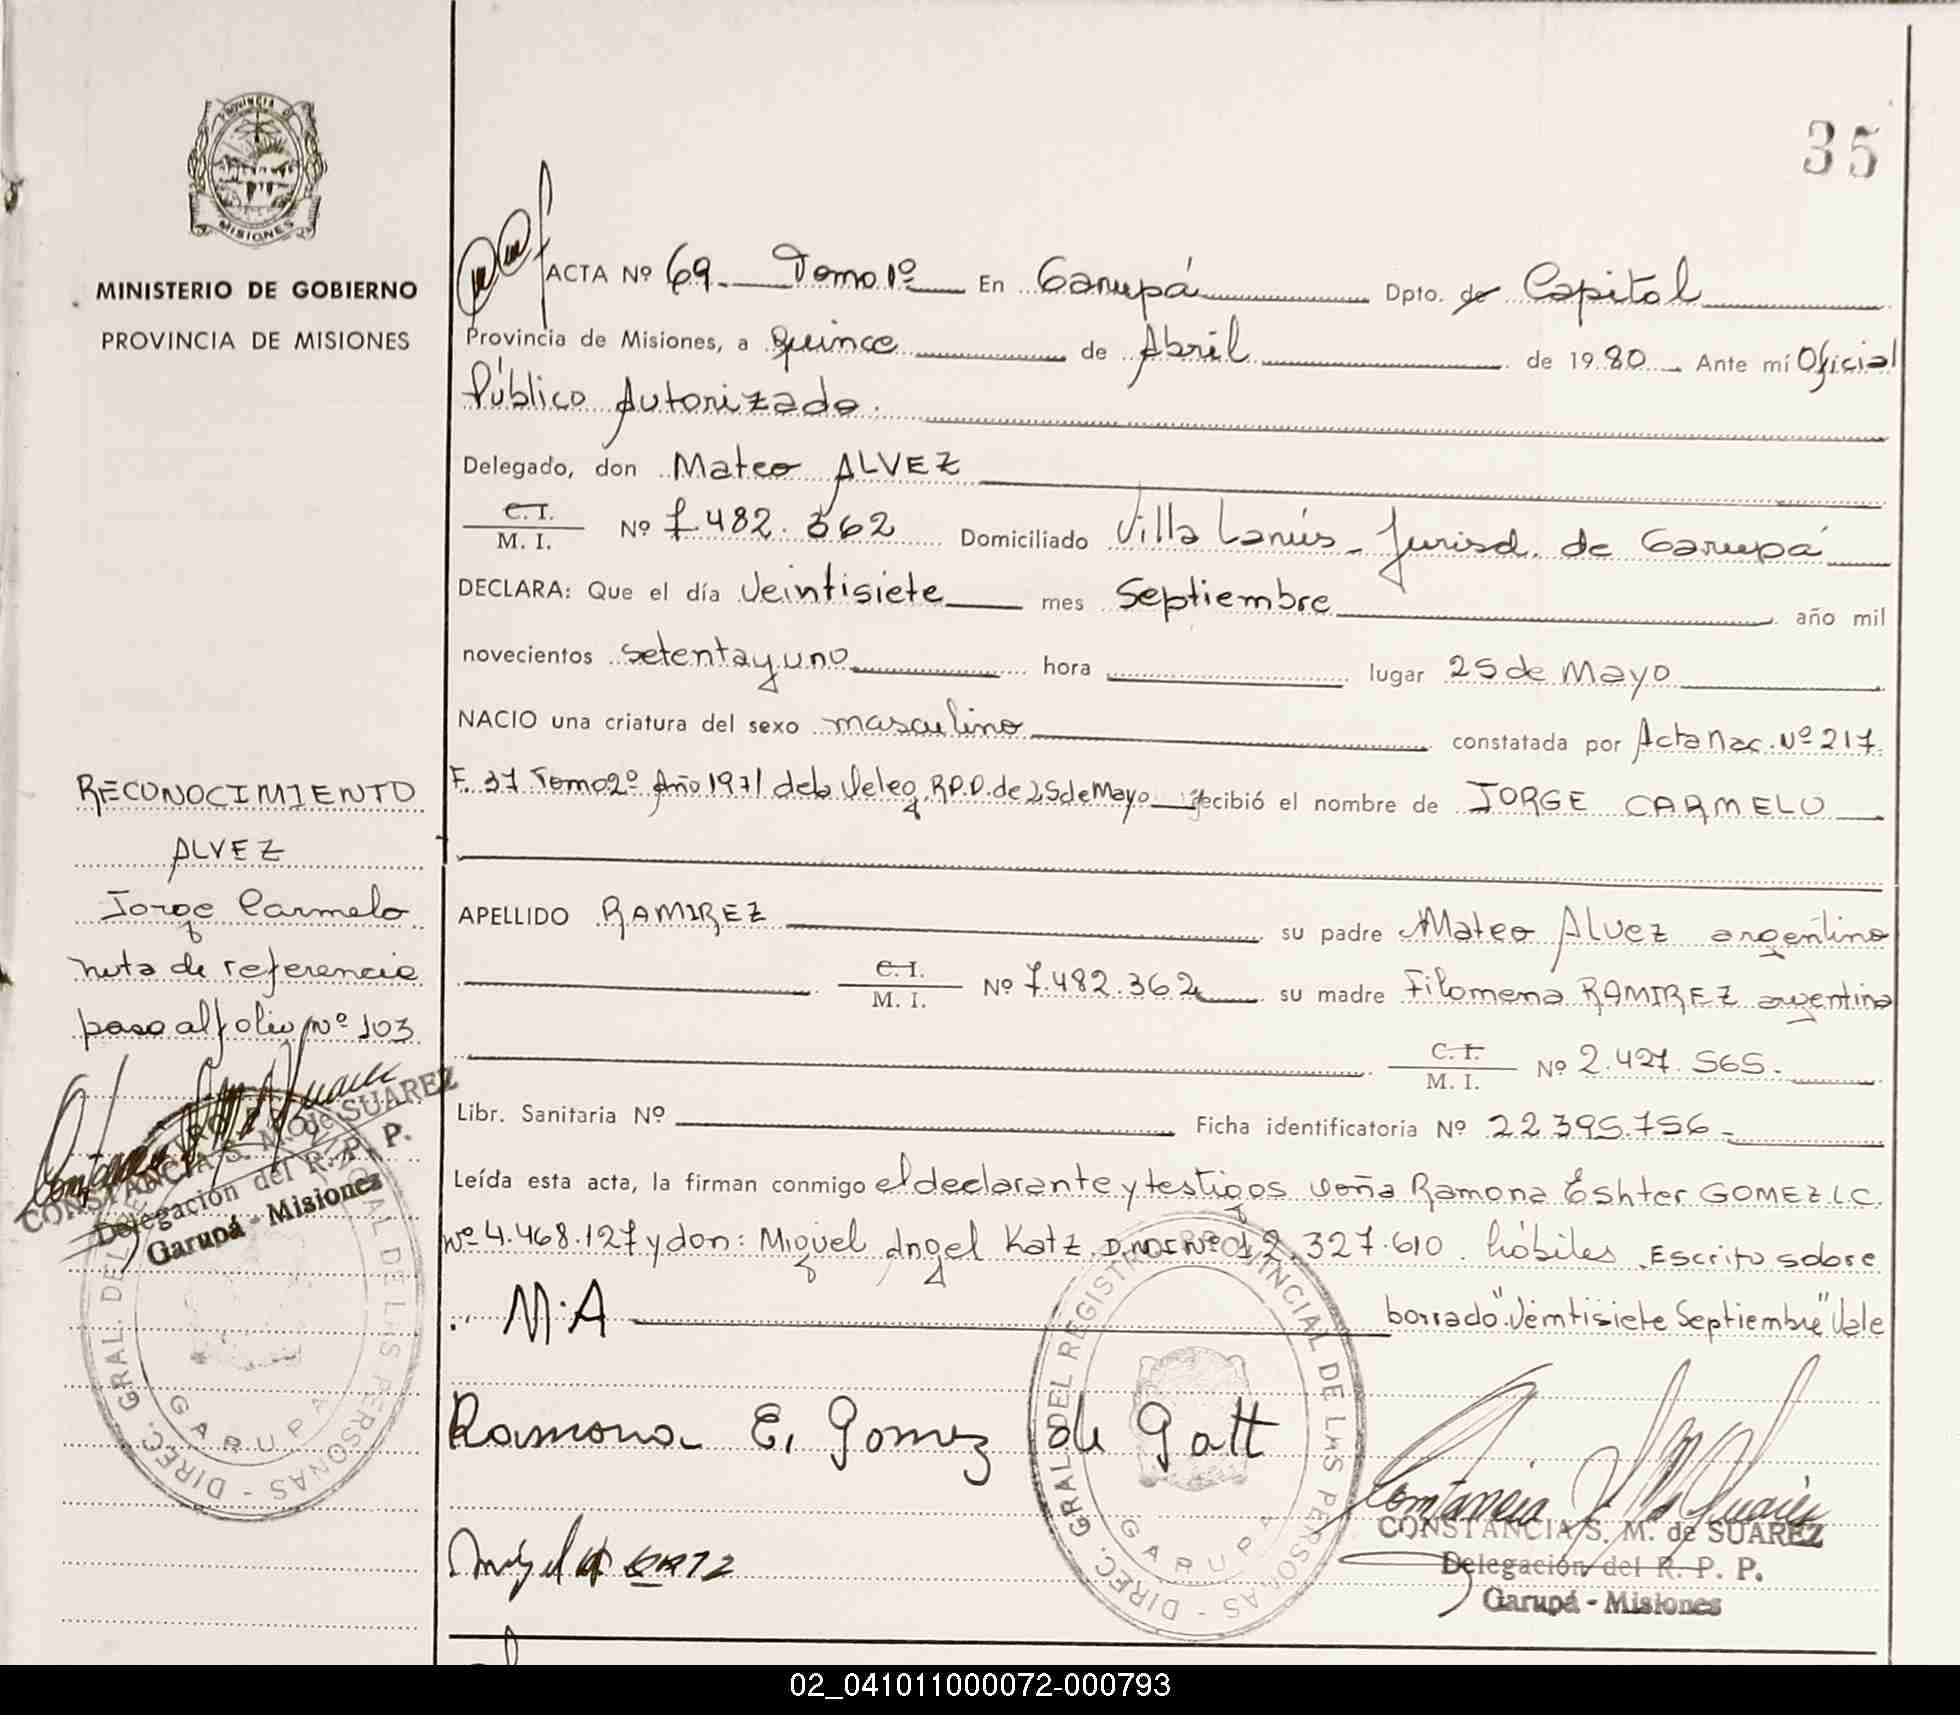 35
PROVINCIA DE
MISIONES
MINISTERIO DE GOBIERNO
PROVINCIA DE MISIONES
ACTA Nº 69 Tomo 1º En Garupá Dpto. de Capital
Provincia de Misiones, a quince de Abril de 1980 Ante mí Oficial
Público Autorizado.
Delegado, don Mateo ALVEZ
C.I. M.I. Nº 7.482.362 Domiciliado Villa Lanús - Jurisd. de Garupá
DECLARA: Que el día Veintisiete mes Septiembre año mil
novecientos setenta y uno hora lugar 25 de Mayo
NACIO una criatura del sexo masculino constatada por Acta Nac. Nº 217
F. 37 Tomo 2º Año 1971 de la Deleg. R.P.P. de 25 de Mayo recibió el nombre de JORGE CARMELO
APELLIDO RAMIREZ su padre Mateo Alvez argentino
C.I. M.I. Nº 7.482.362 su madre Filomena RAMIREZ argentina
C.I. M.I. Nº 2.427.565.
Libr. Sanitaria Nº Ficha identificatoria Nº 22.395.756
Leída esta acta, la firman conmigo el declarante y testigos Doña Ramona Eshter GOMEZ L.C.
Nº 4.468.127 y don: Miguel Angel Katz D.N.I Nº 12.327.610. hábiles. Escrito sobre
M.A borrado "Veintisiete Septiembre" Vale
Ramona E. Gomez de Gatt
Miguel A KATZ
Constancia S M de Suarez
CONSTANCIA S. M. de SUAREZ
Delegación del R. P. P.
Garupá - Misiones
DIREC. GRAL. DEL REGISTRO PROVINCIAL DE LAS PERSONAS -
GARUPA
RECONOCIMIENTO
ALVEZ
Jorge Carmelo
nota de referencia
paso al folio Nº 103
Constancia S M de Suarez
CONSTANCIA S. M. de SUAREZ
Delegación del R. P. P.
Garupá - Misiones
DIREC. GRAL. DEL REGISTRO PROVINCIAL DE LAS PERSONAS -
GARUPA
02_041011000072-000793